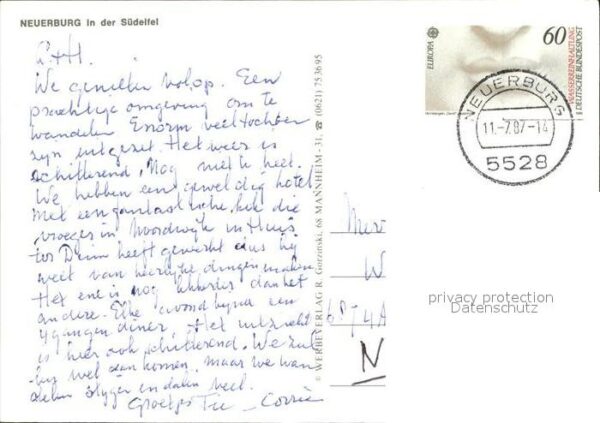 NEUERBURG in der Südeifel
P. + H.
We genieten volop. Een
prachtige omgeving om te
wandelen Enorm veel tochten
zyn uitgezet. Het weer is
schitterend, Nog niet te heet.
We hebben een geweldig hotel
Met een fantastische kok die
vroeger in Noordwijk in Huis
ter Duin heeft gewerkt dus hij
weet van heerlijke dingen maken
Het ene is nog lekkerder dan het
andere. Elke avond byna een
4 gangen diner, Het uitzicht
is hier ook schitterend. We zul
wel aan komen, maar we wan
delen stijgen en dalen veel.
Groetjes Corrie
© WERBEVERLAG R. Gorzinski, 68 MANNHEIM-31, ☎ (0621) 753695
EUROPA
60
WASSERREINHALTUNG
DEUTSCHE BUNDESPOST
NEUERBURG
11.-7.87-14
5528
Mevr
W
6874A
N
privacy protection
Datenschutz